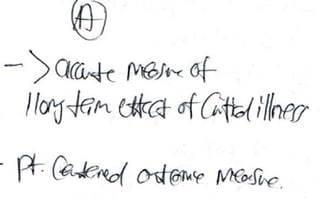 A
-> accurate measure of
long term effect of Critical illness
- Pt. Centered outcome measure.